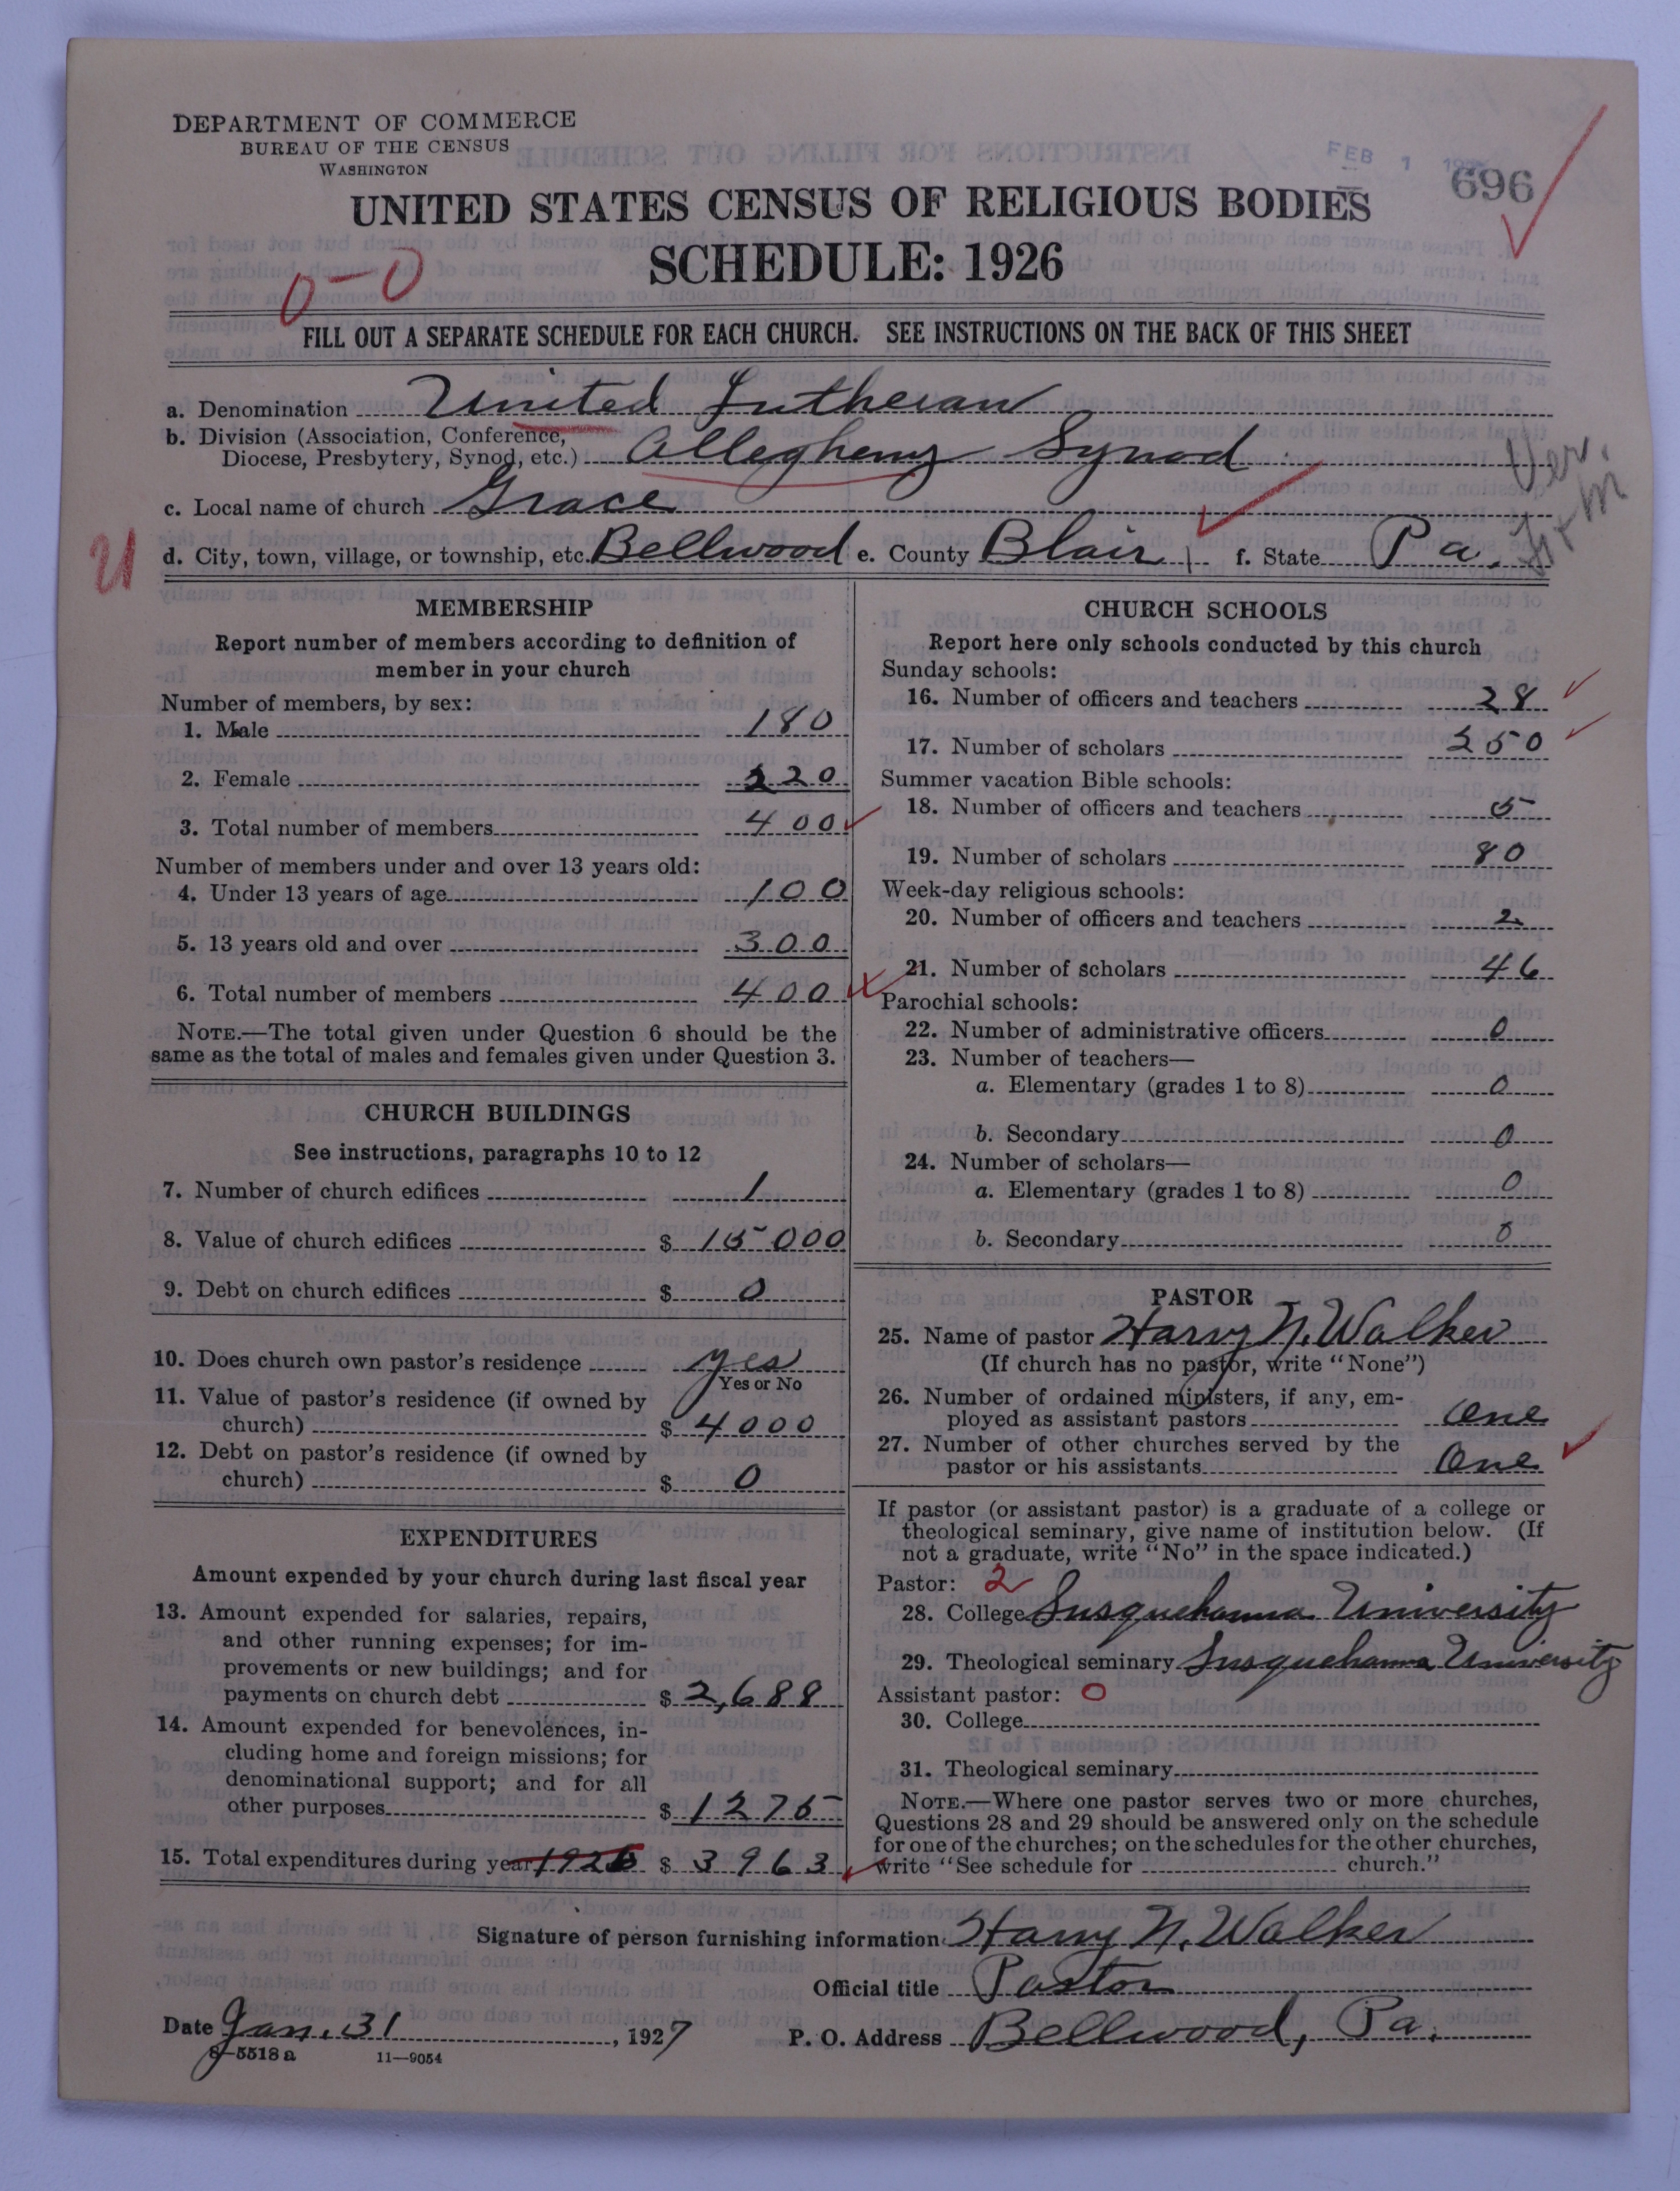 DEPARTMENT OF COMMERCE
BUREAU OF THE CENSUS
WASHINGTON
FEB 1
696
UNITED STATES CENSUS OF RELIGIOUS BODIES
SCHEDULE: 1926
0-0
FILL OUT A SEPARATE SCHEDULE FOR EACH CHURCH. SEE INSTRUCTIONS ON THE BACK OF THIS SHEET
a. Denomination United Lutheran
b. Division (Association, Conference, Diocese, Presbytery, Synod, etc.) Allegheny Synod
Ver.
c. Local name of church Grace
d. City, town, village, or township, etc. Bellwood e. County Blair f. State Pa.
MEMBERSHIP
Report number of members according to definition of
member in your church
Number of members, by sex:
1. Male 180
2. Female 220
3. Total number of members 400
Number of members under and over 13 years old:
4. Under 13 years of age 100
5. 13 years old and over 300
6. Total number of members 400
NOTE.—The total given under Question 6 should be the
same as the total of males and females given under Question 3.
CHURCH BUILDINGS
See instructions, paragraphs 10 to 12
7. Number of church edifices 1
8. Value of church edifices $ 15000
9. Debt on church edifices $ 0
10. Does church own pastor's residence yes
Yes or No
11. Value of pastor's residence (if owned by
church) $ 4000
12. Debt on pastor's residence (if owned by
church) $ 0
EXPENDITURES
Amount expended by your church during last fiscal year
13. Amount expended for salaries, repairs,
and other running expenses; for im-
provements or new buildings; and for
payments on church debt $ 2,688
14. Amount expended for benevolences, in-
cluding home and foreign missions; for
denominational support; and for all
other purposes $ 1275
15. Total expenditures during year 1926 $ 3963
CHURCH SCHOOLS
Report here only schools conducted by this church
Sunday schools:
16. Number of officers and teachers 28
17. Number of scholars 250
Summer vacation Bible schools:
18. Number of officers and teachers 5
19. Number of scholars 80
Week-day religious schools:
20. Number of officers and teachers 2
21. Number of scholars 46
Parochial schools:
22. Number of administrative officers 0
23. Number of teachers—
a. Elementary (grades 1 to 8) 0
b. Secondary 0
24. Number of scholars—
a. Elementary (grades 1 to 8) 0
b. Secondary 0
PASTOR
25. Name of pastor Harry N. Walker
(If church has no pastor, write "None")
26. Number of ordained ministers, if any, em-
ployed as assistant pastors One
27. Number of other churches served by the
pastor or his assistants One
If pastor (or assistant pastor) is a graduate of a college or
theological seminary, give name of institution below. (If
not a graduate, write "No" in the space indicated.)
Pastor: 2
28. College Susquehanna University
29. Theological seminary Susquehanna University
Assistant pastor: 0
30. College
31. Theological seminary
NOTE.—Where one pastor serves two or more churches,
Questions 28 and 29 should be answered only on the schedule
for one of the churches; on the schedules for the other churches,
write "See schedule for church."
Signature of person furnishing information Harry N. Walker
Official title Pastor
Date Jan. 31, 1927 P. O. Address Bellwood, Pa.
8-5518a 11—9054